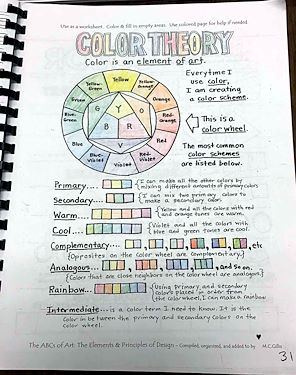 Use as a worksheet. Color & fill in empty areas. Use colored page for help if needed.
COLOR THEORY
Color is an element of art.
Everytime I
use color,
I am creating
a color scheme.
This is a
color wheel.
The most common
color schemes
are listed below.
Yellow
Yellow-Orange
Orange
Red-Orange
Red
Red-Violet
Violet
Blue-Violet
Blue
Blue-Green
Green
Yellow-Green
G
Y
O
B
R
V
Primary.... I can make all the other colors by
mixing different amounts of primary colors
Secondary.... I can mix two primary colors to
make a secondary color.
Warm.... Yellow and all the colors with red
and orange tones are warm.
Cool.... Violet and all the colors with
blue and green tones are cool.
Complementary.... etc
(Opposites on the color wheel are complementary.)
Analogous.... and so on.
(Colors that are close neighbors on the color wheel are analogous.)
Rainbow.... Using primary and secondary
colors placed in order from
the color wheel, I can make a rainbow.
Intermediate.... is a color term I need to know. It is the
color in between the primary and secondary colors on the
color wheel.
The ABCs of Art: The Elements & Principles of Design - Compiled, organized, and added to by M.C.Gillis
31